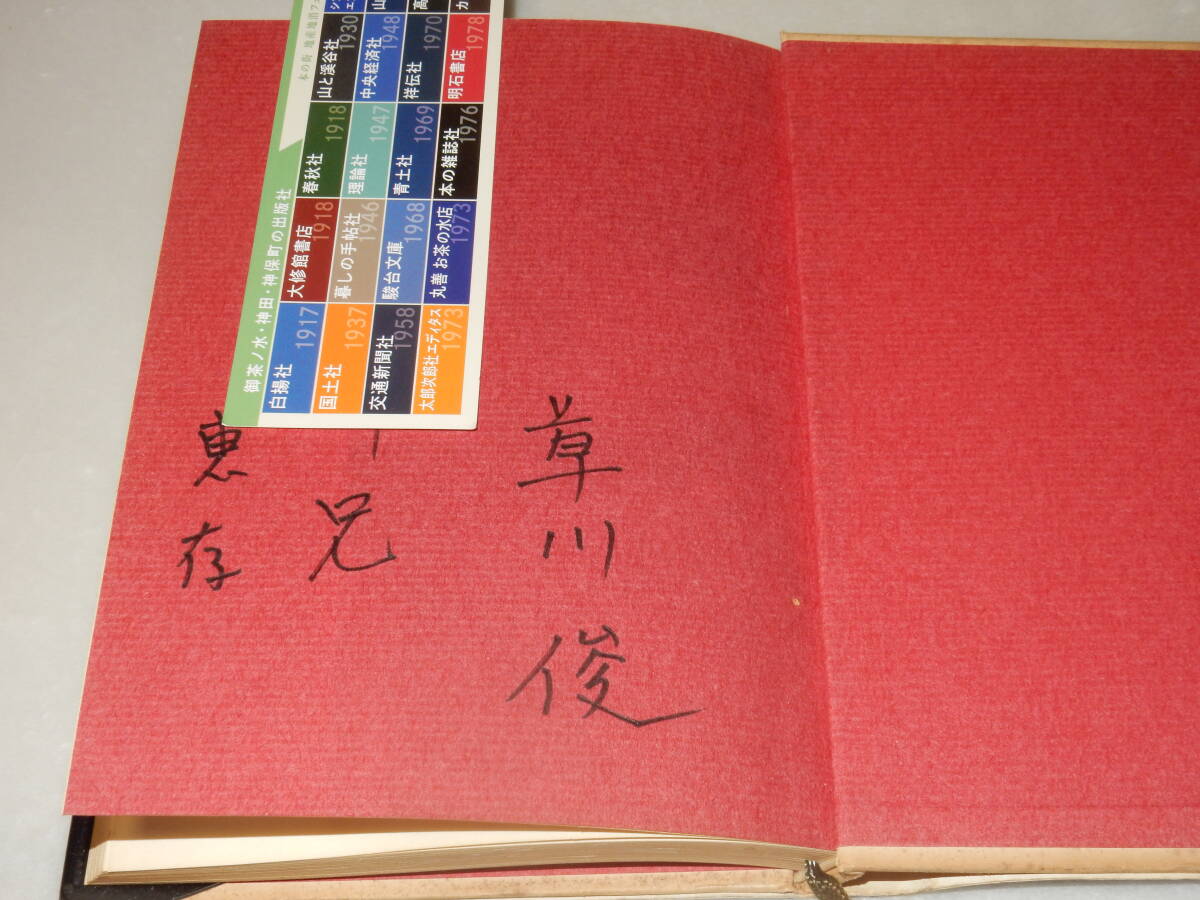 本の街 地産地消フェ
御茶ノ水・神田・神保町の出版社
山と渓谷社 1930
中央経済社 1948
祥伝社 1970
明石書店 1978
春秋社 1918
理論社 1947
青土社 1969
本の雑誌社 1976
大修館書店 1918
暮しの手帖社 1946
駿台文庫 1968
丸善 お茶の水店 1973
白揚社 1917
国土社 1937
交通新聞社 1958
太郎次郎社エディタス 1973
恵存
兄
草川俊